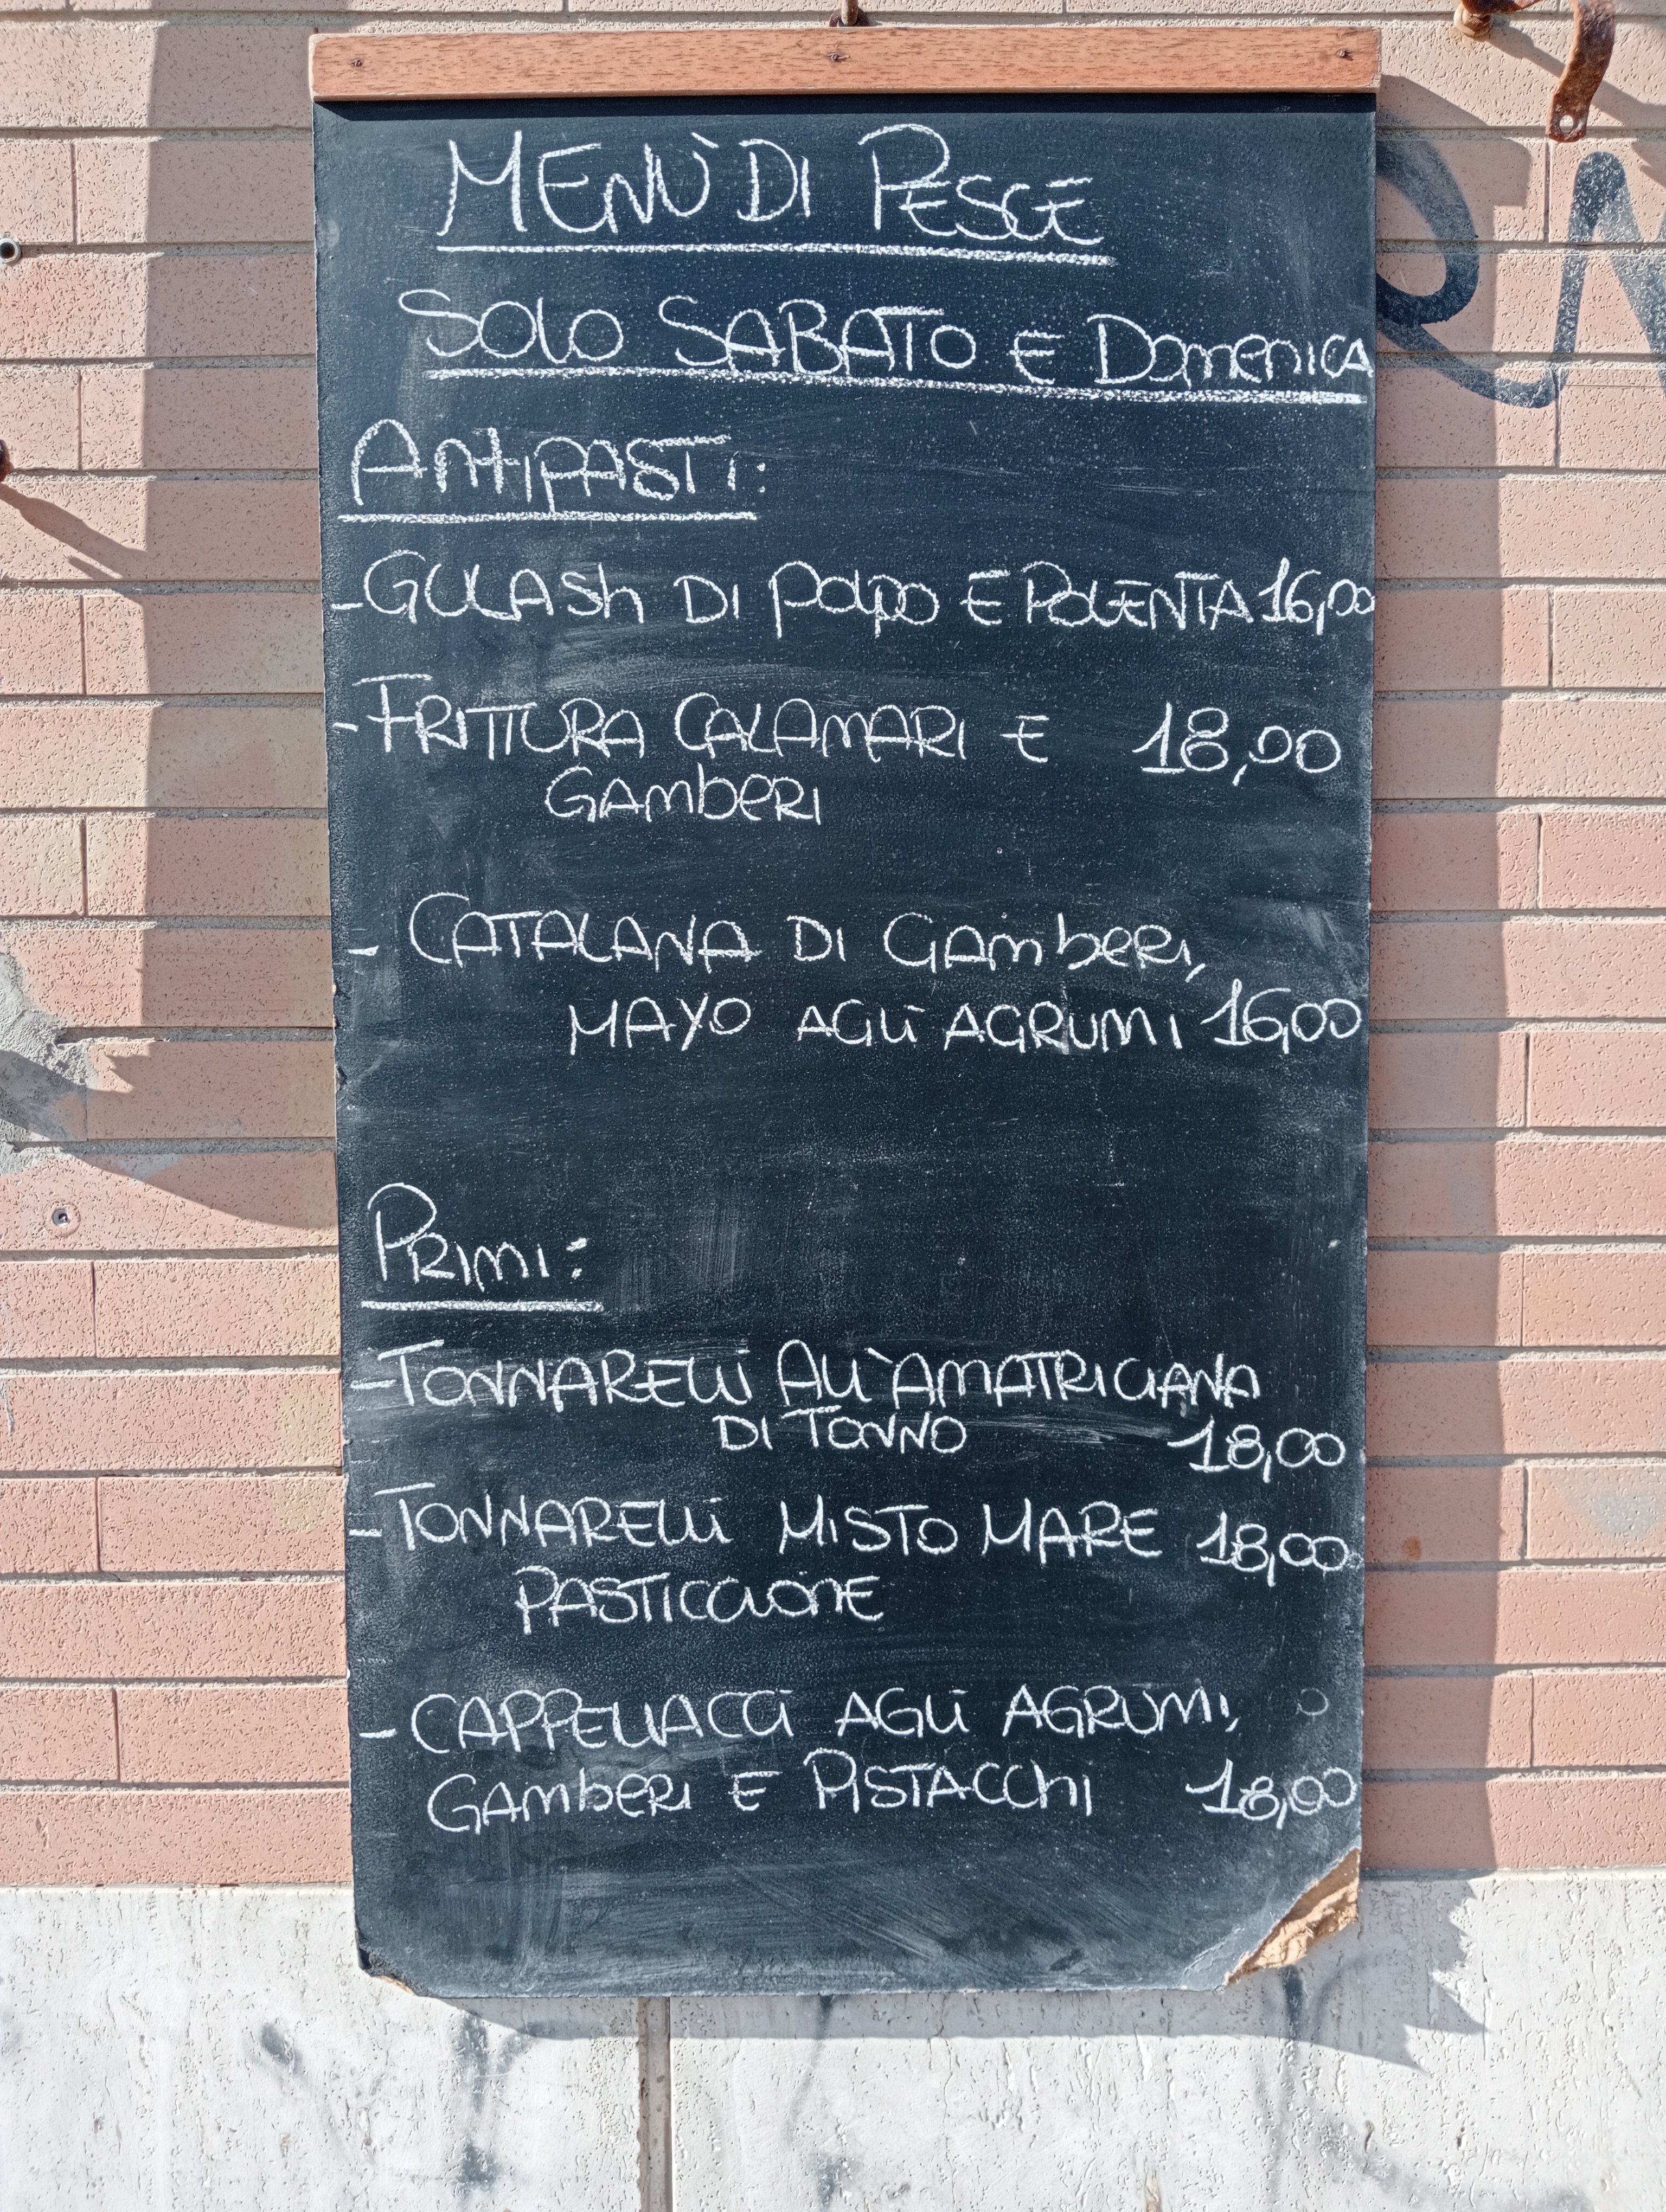 MENÙ DI PESCE
SOLO SABATO E DOMENICA
ANTIPASTI:
- GULASH DI POLPO E POLENTA 16,00
- FRITTURA CALAMARI E 18,00
GAMBERI
- CATALANA DI GAMBERI,
MAYO AGLI AGRUMI 16,00
PRIMI:
- TONNARELLI ALL'AMATRICIANA
DI TONNO 18,00
- TONNARELLI MISTO MARE 18,00
PASTICCIONE
- CAPPELLACCI AGLI AGRUMI,
GAMBERI E PISTACCHI 18,00